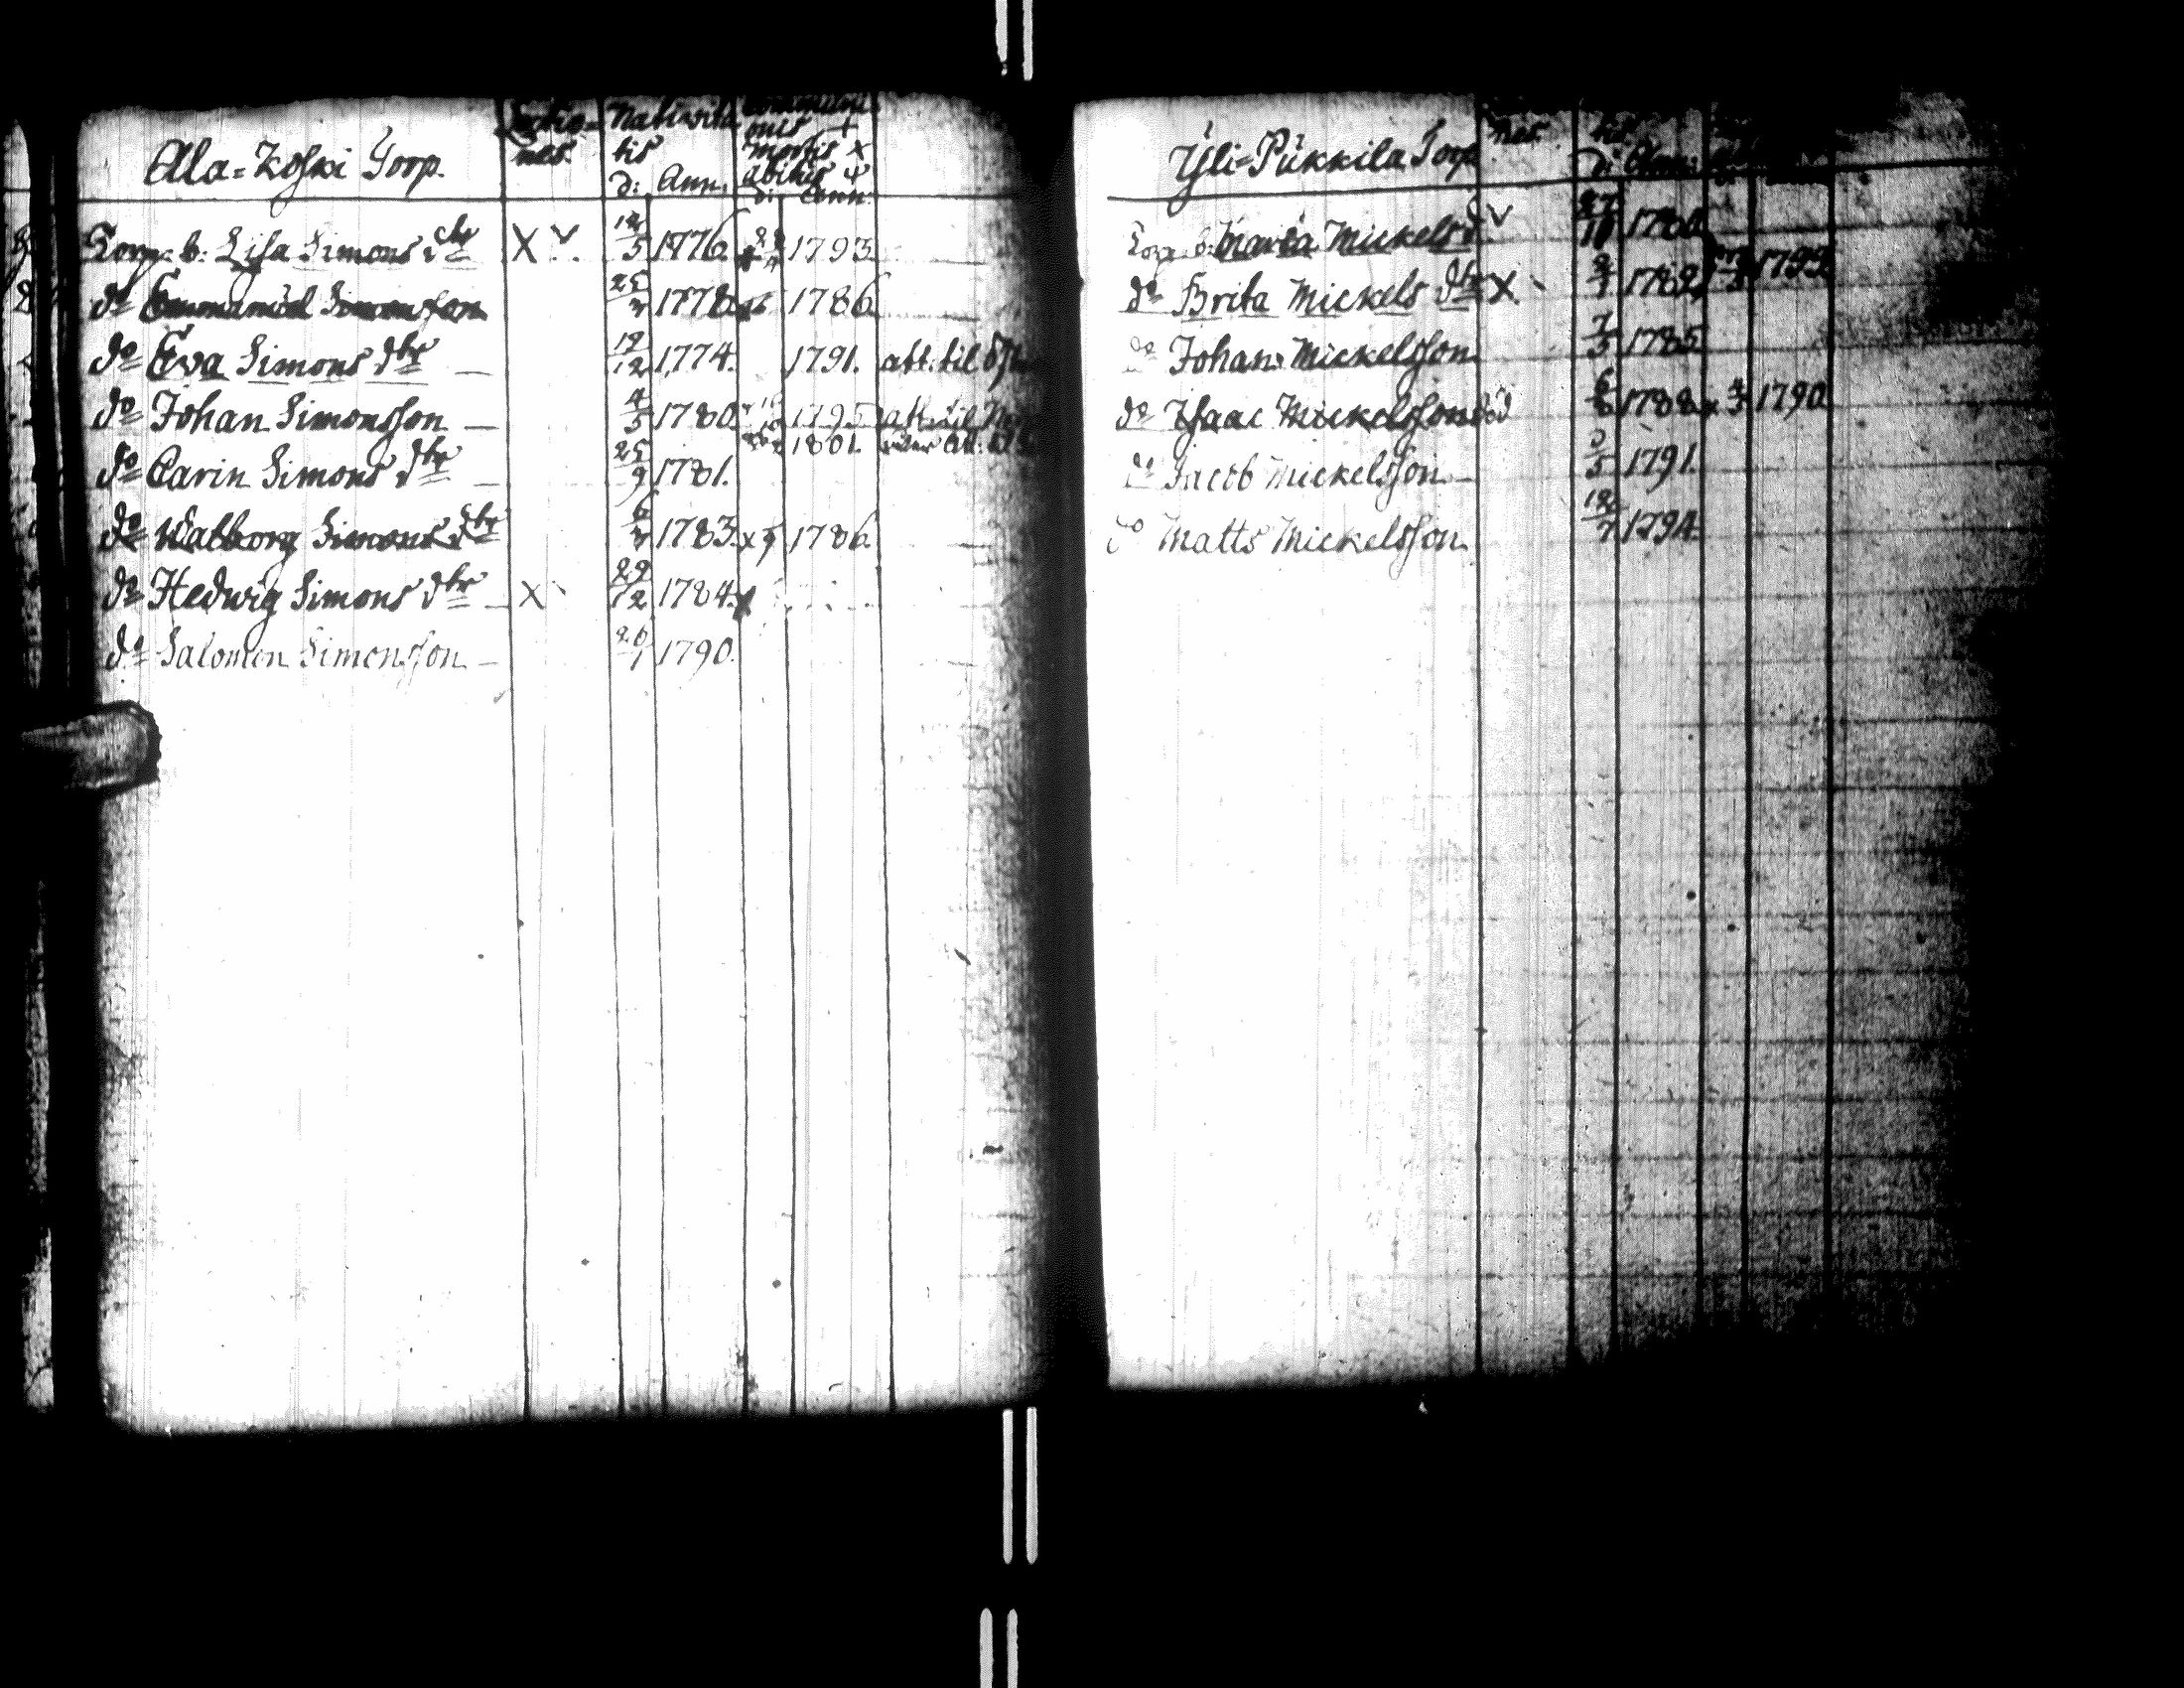 Ala=Koski Torp. Lectio= nes. Nativita tis d: Ann. Communi onis + Mortis x abitus d: Ann:
Torp. b: Lisa Simons dtr X 5 1776. 1793.
do Emmanuel Simonsson 25/3 1778. 1786.
do Eva Simons dtr — 12 1774. 1791. att: til
do Johan Simonsson — 4/5 1780. 1795 att til
1801.
do Carin Simons dtr — 25/9 1781.
do Walborg Simons dtr 6 1783. x 1786.
do Hedwig Simons dtr — X 29/12 1784. x
do Salomon Simonsson — 26/1 1790.
Yli=Pukkila Torp nes. tis d: Ann:
Torp b: Maria Mickels d 27/10 1780
do Brita Mickels dtr X 1782 1793
do Johan Mickelsson 7/5 1785
do Isaac Mickelsson 6 1788 x 1790
do Jacob Mickelsson — 5 1791.
do Matts Mickelsson 7 1794.